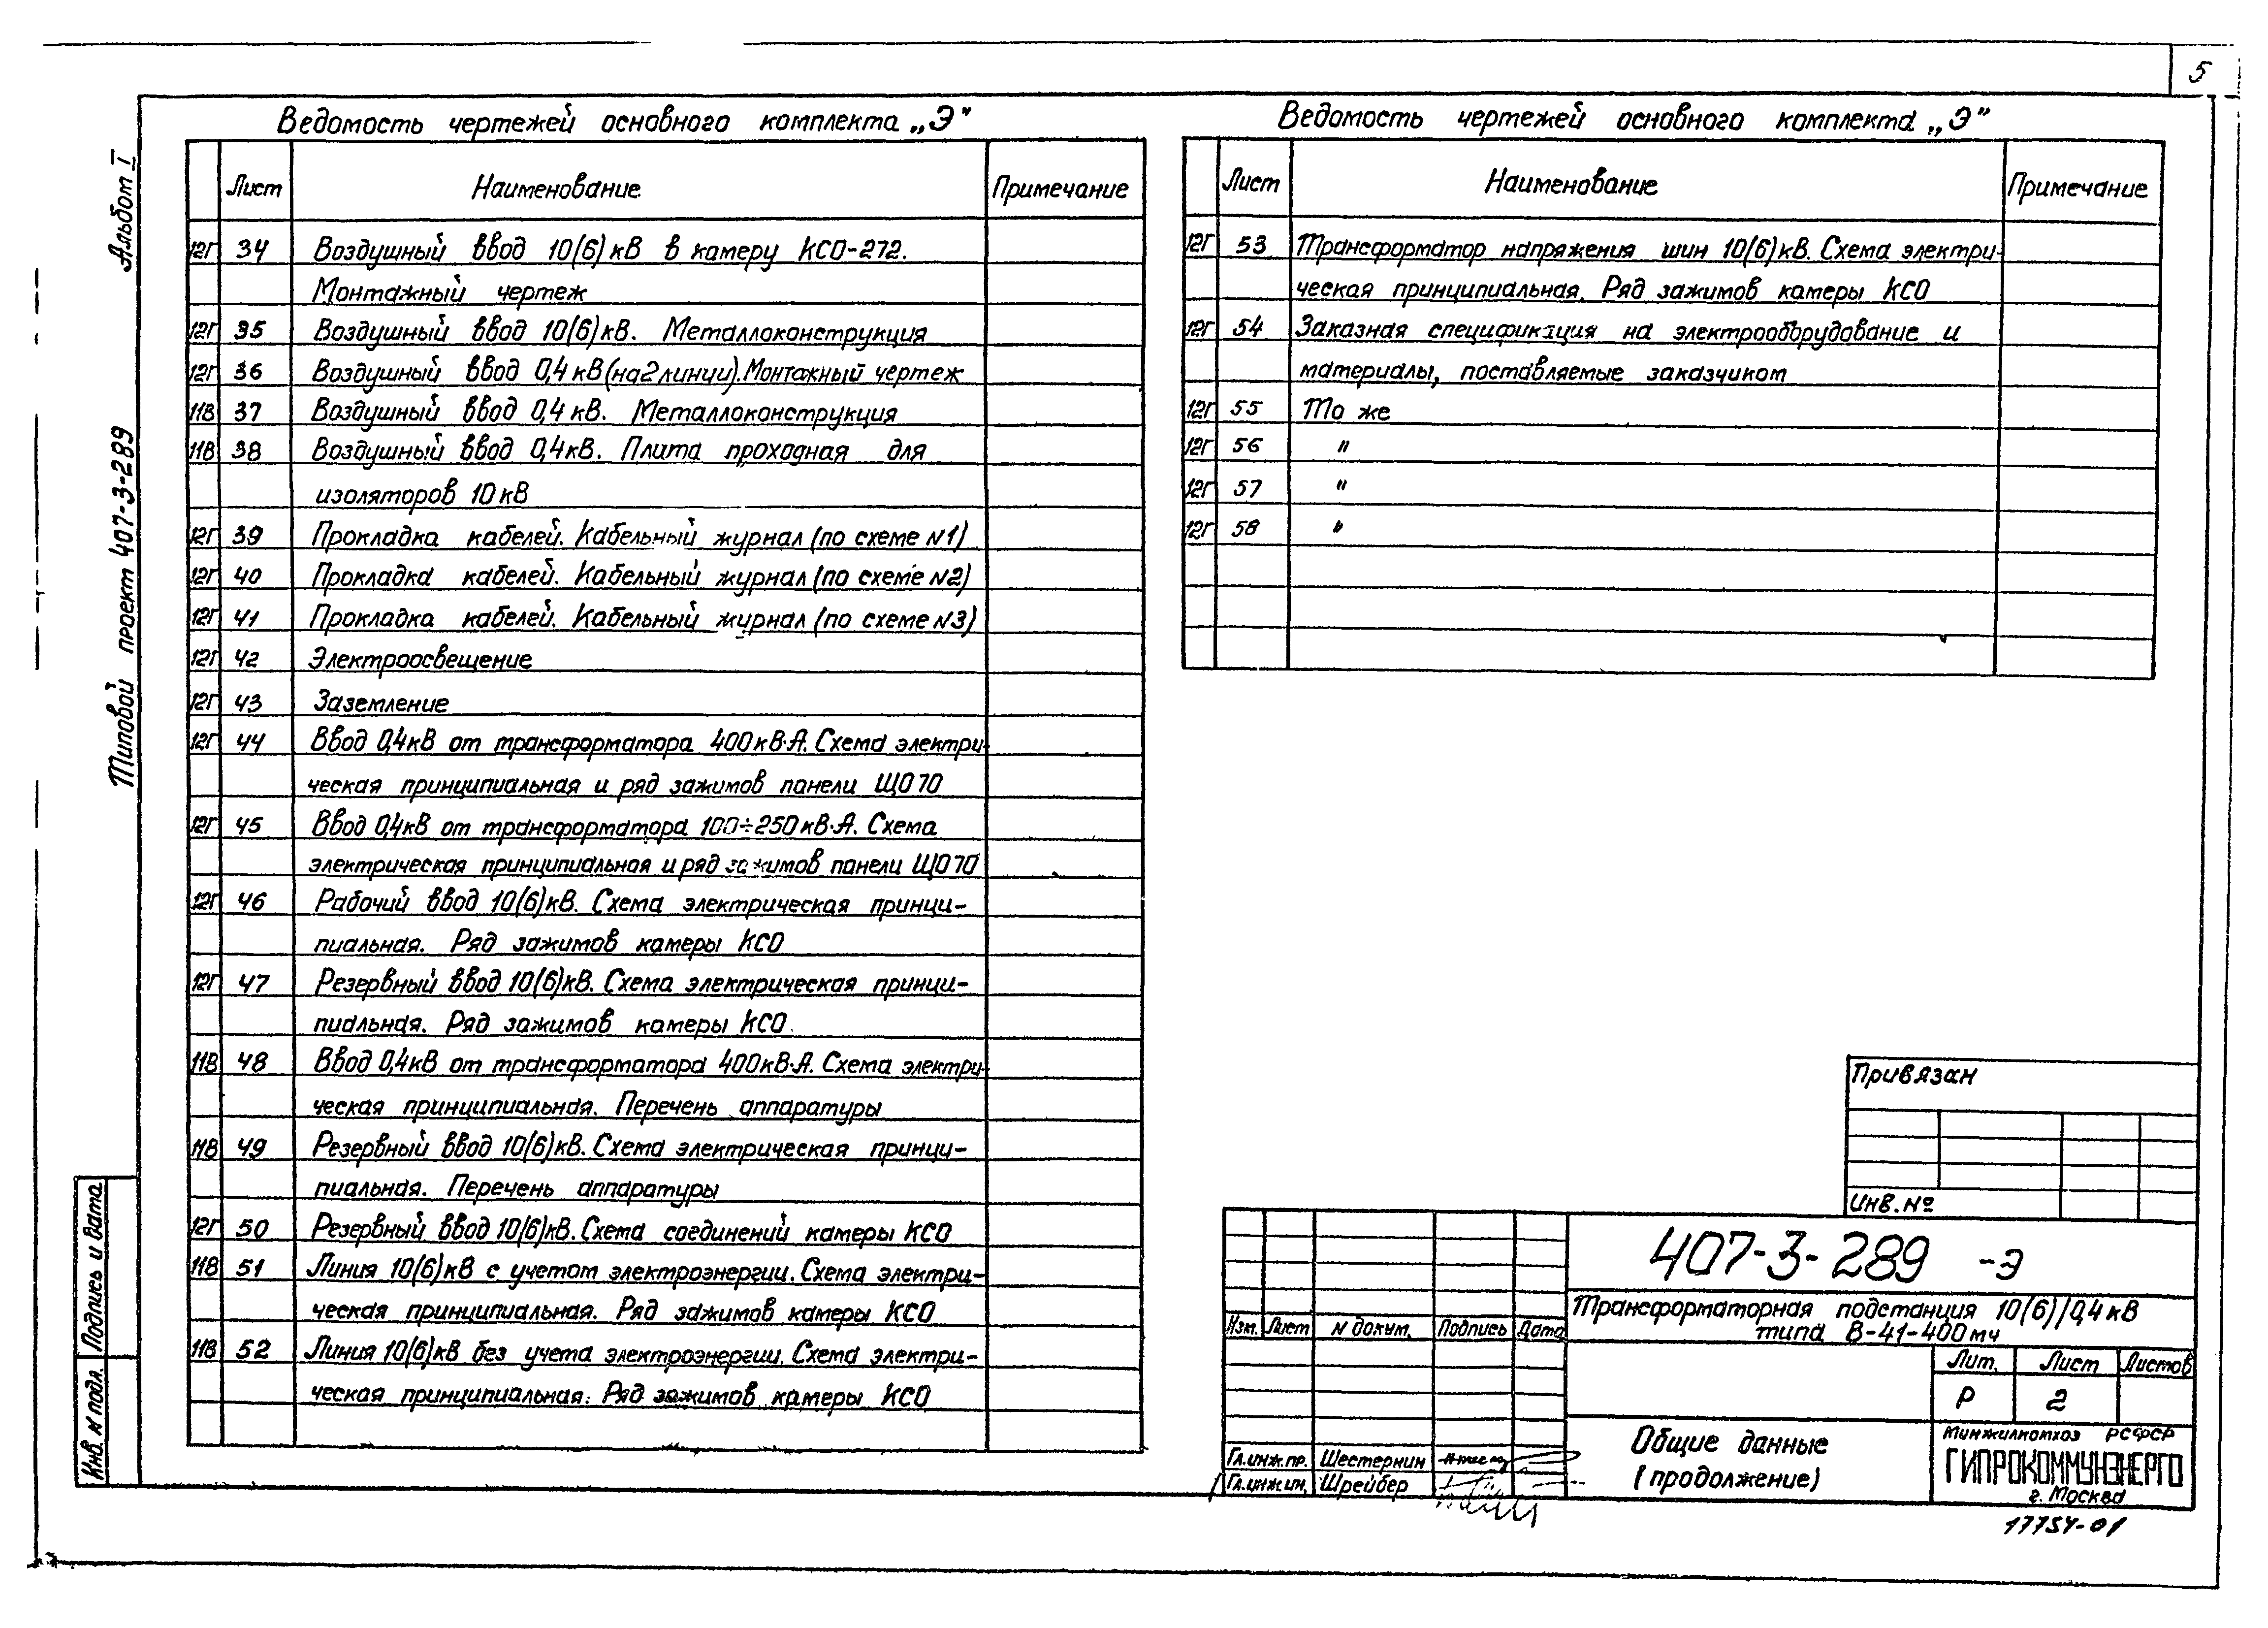 5
Альбом I
Типовой проект 407-3-289
Ведомость чертежей основного комплекта „Э"
Лист Наименование Примечание
12Г 34 Воздушный ввод 10(6) кВ в камеру КСО-272.
Монтажный чертеж
12Г 35 Воздушный ввод 10(6) кВ. Металлоконструкция
12Г 36 Воздушный ввод 0,4 кВ (на 2 линии). Монтажный чертеж
11В 37 Воздушный ввод 0,4 кВ. Металлоконструкция
11В 38 Воздушный ввод 0,4 кВ. Плита проходная для
изоляторов 10 кВ
12Г 39 Прокладка кабелей. Кабельный журнал (по схеме N1)
12Г 40 Прокладка кабелей. Кабельный журнал (по схеме N2)
12Г 41 Прокладка кабелей. Кабельный журнал (по схеме N3)
12Г 42 Электроосвещение
12Г 43 Заземление
12Г 44 Ввод 0,4кВ от трансформатора 400 кВ·А. Схема электри-
ческая принципиальная и ряд зажимов панели ЩО70
12Г 45 Ввод 0,4кВ от трансформатора 100÷250 кВ·А. Схема
электрическая принципиальная и ряд зажимов панели ЩО70
12Г 46 Рабочий ввод 10(6) кВ. Схема электрическая принци-
пиальная. Ряд зажимов камеры КСО
12Г 47 Резервный ввод 10(6) кВ. Схема электрическая принци-
пиальная. Ряд зажимов камеры КСО.
11В 48 Ввод 0,4кВ от трансформатора 400 кВ·А. Схема электри-
ческая принципиальная. Перечень аппаратуры
11В 49 Резервный ввод 10(6) кВ. Схема электрическая принци-
пиальная. Перечень аппаратуры
12Г 50 Резервный ввод 10(6) кВ. Схема соединений камеры КСО
11В 51 Линия 10(6) кВ с учетом электроэнергии. Схема электри-
ческая принципиальная. Ряд зажимов камеры КСО
11В 52 Линия 10(6) кВ без учета электроэнергии. Схема электри-
ческая принципиальная. Ряд зажимов камеры КСО
Ведомость чертежей основного комплекта „Э"
Лист Наименование Примечание
12Г 53 Трансформатор напряжения шин 10(6) кВ. Схема электри-
ческая принципиальная. Ряд зажимов камеры КСО
12Г 54 Заказная спецификация на электрооборудование и
материалы, поставляемые заказчиком
12Г 55 То же
12Г 56 "
12Г 57 "
12Г 58 "
Привязан
Инв. №
407-3-289 -Э
Трансформаторная подстанция 10(6)/0,4 кВ
типа В-41-400мч
Изм. Лист N докум. Подпись Дата
Лит. Лист Листов
Р 2
Общие данные
(продолжение)
Минжилкомхоз РСФСР
ГИПРОКОММУНЭНЕРГО
г. Москва
Гл.инж.пр. Шестернин
Гл.инж.ин. Шрейбер
17754-01
Подпись и дата
Инв. N подл.